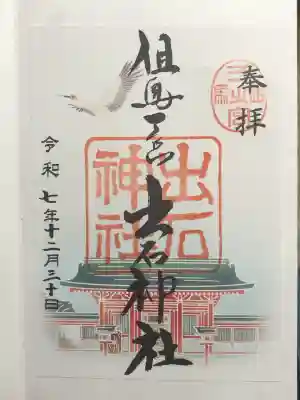 奉拝
但馬一宮出石神社
出石
神社
令和七年十二月三十日